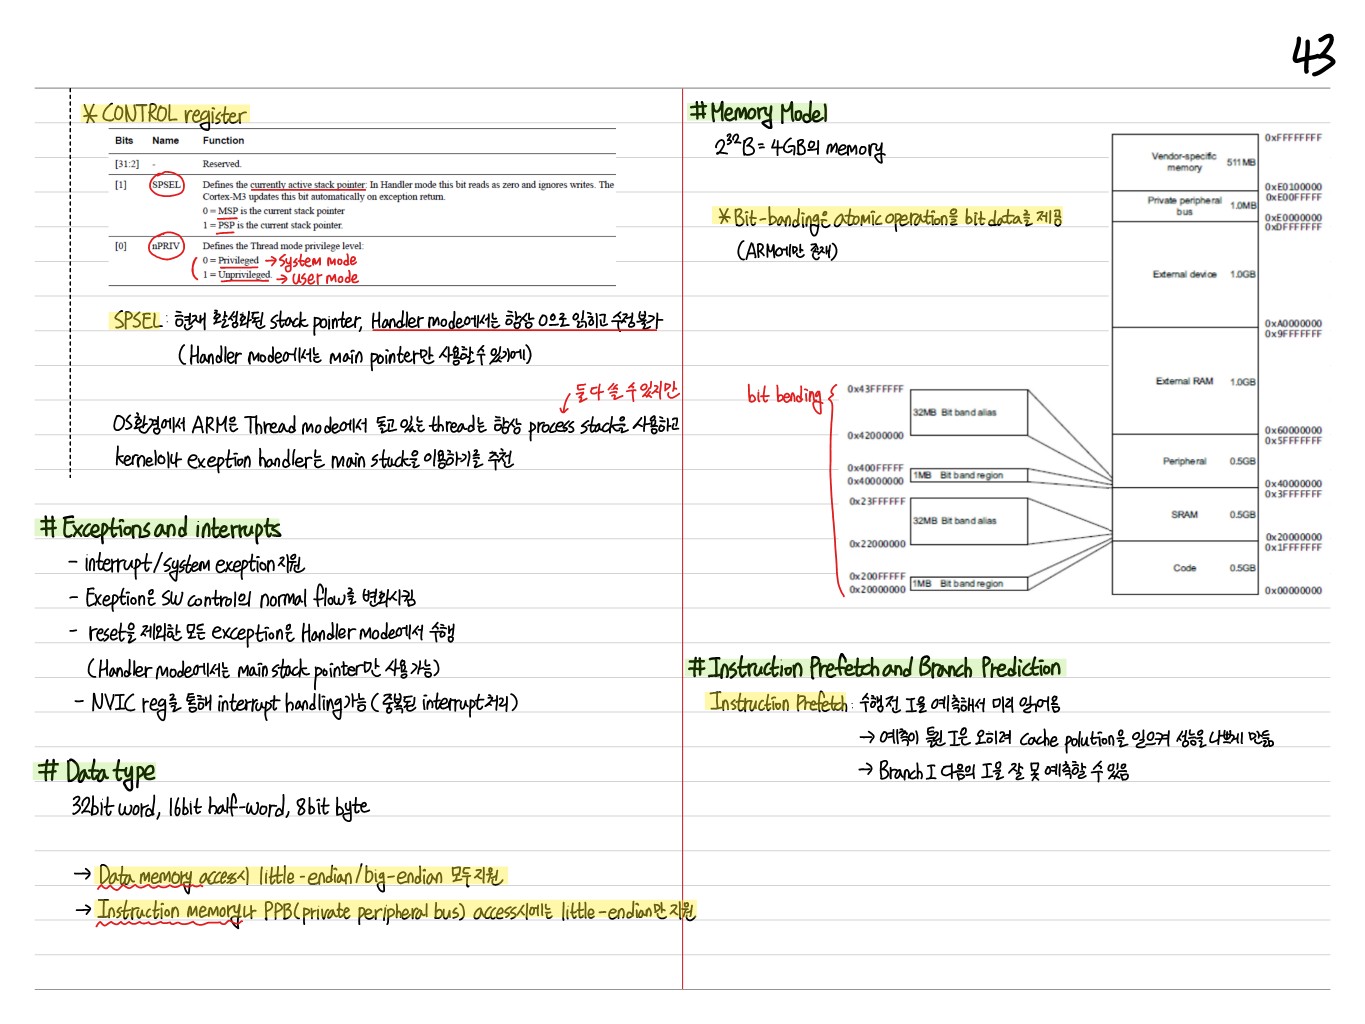 43
* CONTROL register
Bits Name Function
[31:2] - Reserved.
[1] SPSEL Defines the currently active stack pointer: In Handler mode this bit reads as zero and ignores writes. The
Cortex-M3 updates this bit automatically on exception return.
0 = MSP is the current stack pointer
1 = PSP is the current stack pointer.
[0] nPRIV Defines the Thread mode privilege level:
0 = Privileged → System mode
1 = Unprivileged. → User mode
SPSEL : 현재 활성화된 stack pointer, Handler mode에서는 항상 0으로 읽히고 수정 불가
(Handler mode에서는 main pointer만 사용할 수 있기에)
둘 다 쓸 수 있지만
OS환경에서 ARM은 Thread mode에서 돌고 있는 thread는 항상 process stack을 사용하고
kernel이나 exeption handler는 main stack을 이용하기를 추천
# Exceptions and interrupts
- interrupt/system exeption 지원
- Exeption은 SW control의 normal flow를 변화시킴
- reset을 제외한 모든 exception은 Handler mode에서 수행
(Handler mode에서는 main stack pointer만 사용 가능)
- NVIC reg를 통해 interrupt handling 가능 (중복된 interrupt 처리)
# Data type
32bit word, 16bit half-word, 8bit byte
→ Data memory access시 little-endian/big-endian 모두 지원
→ Instruction memory나 PPB(private peripheral bus) access시에는 little-endian만 지원
# Memory Model
2³²B = 4GB의 memory
* Bit-banding은 atomic operation을 bit data를 제공
(ARM에만 존재)
bit bending
0x43FFFFFF
32MB Bit band alias
0x42000000
0x400FFFFF
0x40000000
1MB Bit band region
0x23FFFFFF
32MB Bit band alias
0x22000000
0x200FFFFF
0x20000000
1MB Bit band region
0xFFFFFFFF
Vendor-specific
memory 511MB
0xE0100000
0xE00FFFFF
Private peripheral
bus 1.0MB
0xE0000000
0xDFFFFFFF
External device 1.0GB
0xA0000000
0x9FFFFFFF
External RAM 1.0GB
0x60000000
0x5FFFFFFF
Peripheral 0.5GB
0x40000000
0x3FFFFFFF
SRAM 0.5GB
0x20000000
0x1FFFFFFF
Code 0.5GB
0x00000000
# Instruction Prefetch and Branch Prediction
Instruction Prefetch : 수행 전 I을 예측해서 미리 읽어옴
→ 예측이 틀린 I은 오히려 cache polution을 일으켜 성능을 나쁘게 만듦
→ Branch I 다음의 I을 잘 못 예측할 수 있음